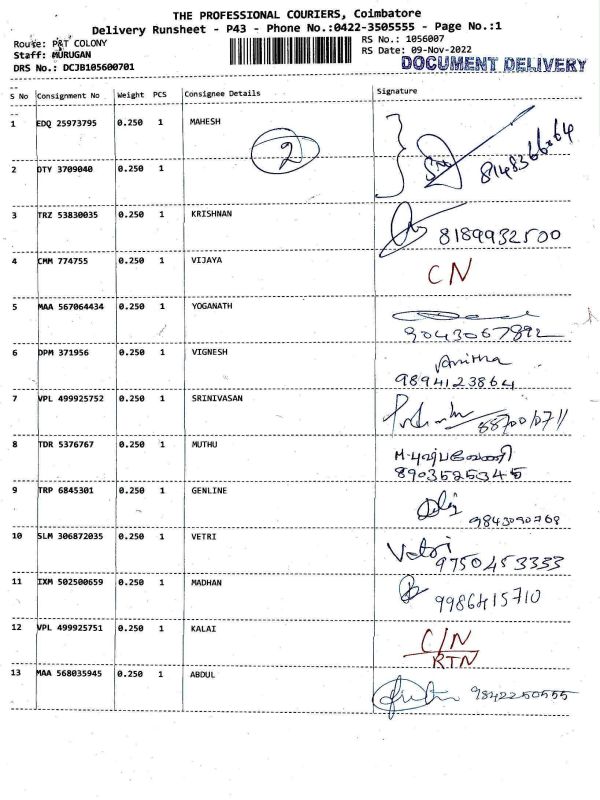 THE PROFESSIONAL COURIERS, Coimbatore
Delivery Runsheet - P43 - Phone No.:0422-3505555 - Page No.:1
Route: P&T COLONY
RS No.: 1056007
Staff: MURUGAN
RS Date: 09-Nov-2022
DRS No.: DCJB105600701
DOCUMENT DELIVERY
S No Consignment No Weight PCS Consignee Details Signature
1 EDQ 25973795 0.250 1 MAHESH
2
2 DTY 3709040 0.250 1
3 TRZ 53830035 0.250 1 KRISHNAN 8189932500
4 CMM 774755 0.250 1 VIJAYA CN
5 MAA 567064434 0.250 1 YOGANATH
9043067892
6 DPM 371956 0.250 1 VIGNESH Anitha
9894123864
7 VPL 499925752 0.250 1 SRINIVASAN
8 TDR 5376767 0.250 1 MUTHU
8903525345
9 TRP 6845301 0.250 1 GENLINE
9843090768
10 SLM 306872035 0.250 1 VETRI Vetri
9750453333
11 IXM 502500659 0.250 1 MADHAN
9986415710
12 VPL 499925751 0.250 1 KALAI C/N
RTN
13 MAA 568035945 0.250 1 ABDUL
9842250555